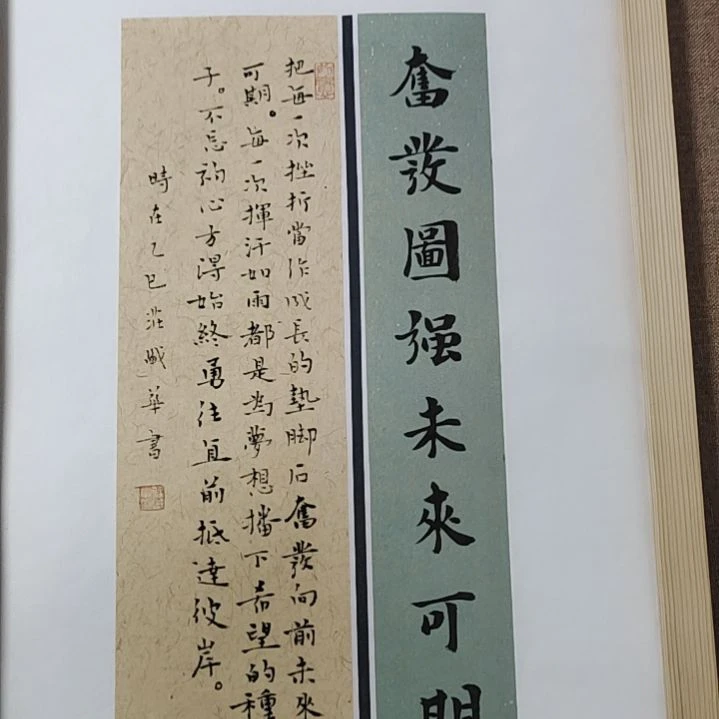 奮發圖强未來可期
把每一次挫折當作成長的墊脚石奮發向前未來
可期。每一次揮汗如雨都是為夢想播下希望的種
子。不忘初心方得始終勇往直前抵達彼岸。
時在乙巳莊 華書